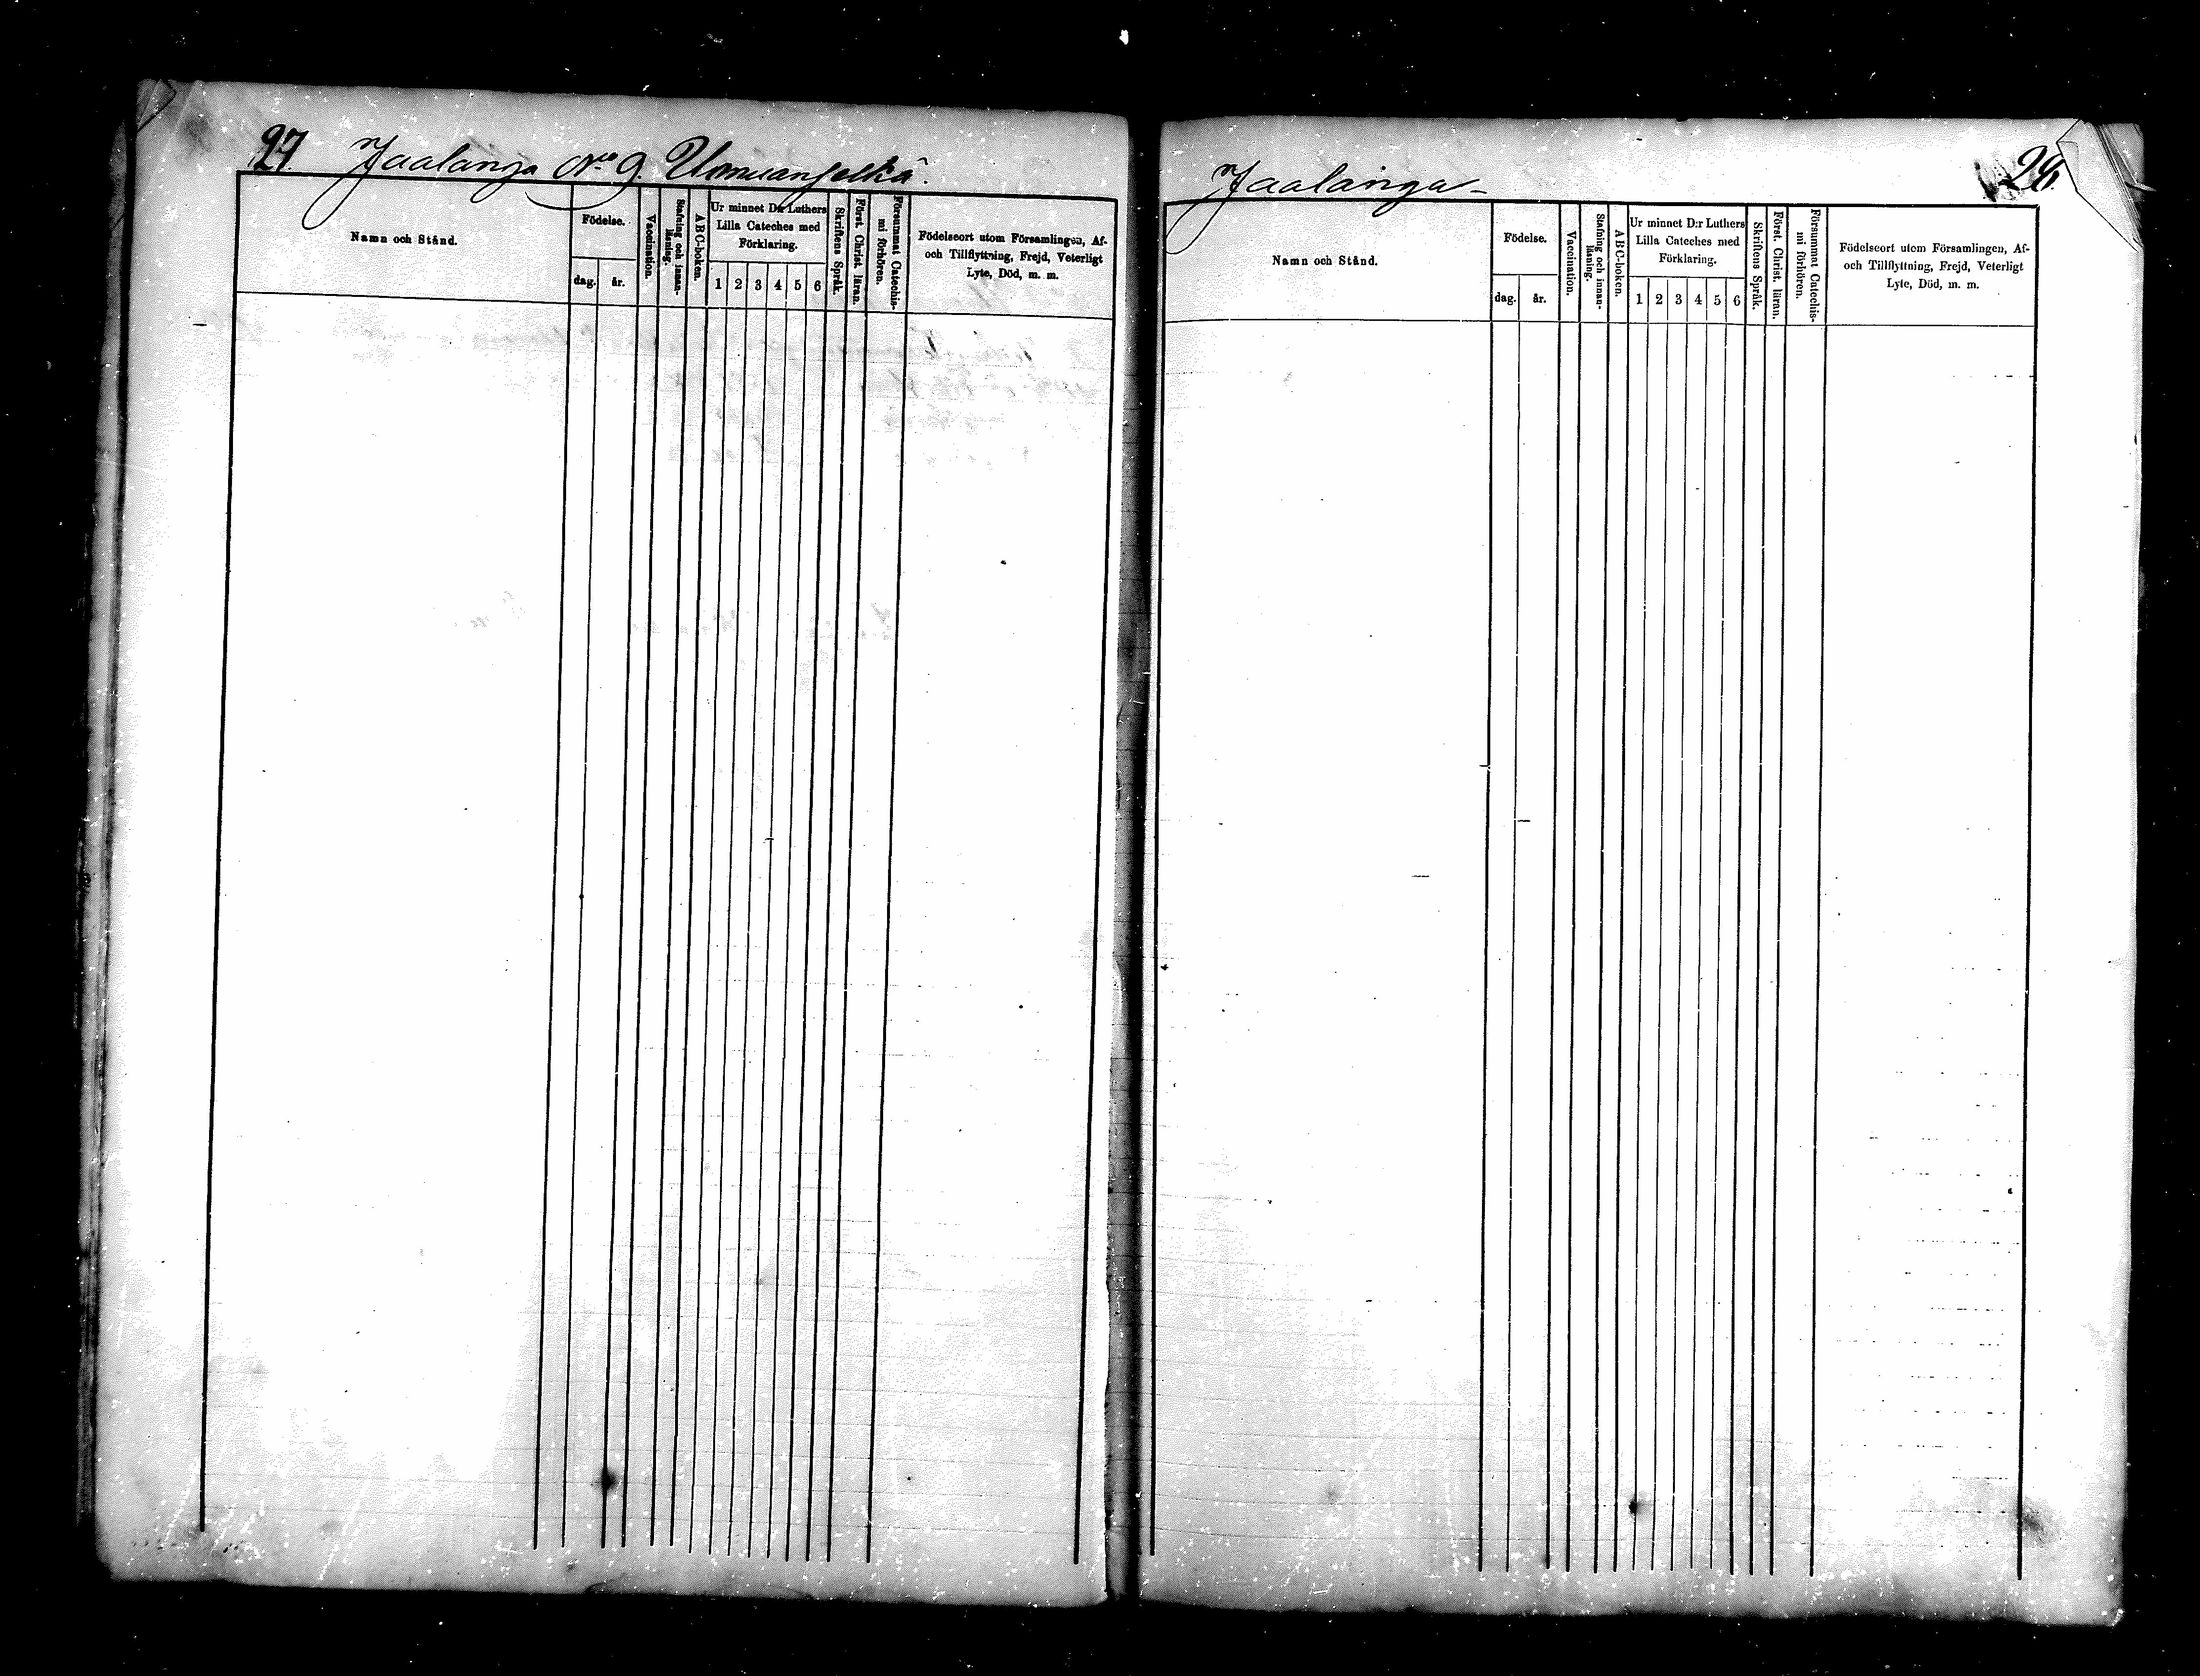 27. Jaalanga No 9.
Namn och Stånd.
Födelse.
dag.
år.
Vaccination.
Stafning och innan-
läsning.
ABC-boken.
Ur minnet D:r Luthers
Lilla Cateches med
Förklaring.
1 2 3 4 5 6
Skriftens Språk.
Först. Christ. läran.
Försummat Catechis-
mi förhören.
Födelseort utom Församlingen, Af-
och Tillflyttning, Frejd, Veterligt
Lyte, Död, m. m.
Jaalanga
Namn och Stånd.
Födelse.
dag.
år.
Vaccination.
Stafning och innan-
läsning.
ABC-boken.
Ur minnet D:r Luthers
Lilla Cateches med
Förklaring.
1 2 3 4 5 6
Skriftens Språk.
Först. Christ. läran.
Försummat Catechis-
mi förhören.
Födelseort utom Församlingen, Af-
och Tillflyttning, Frejd, Veterligt
Lyte, Död, m. m.